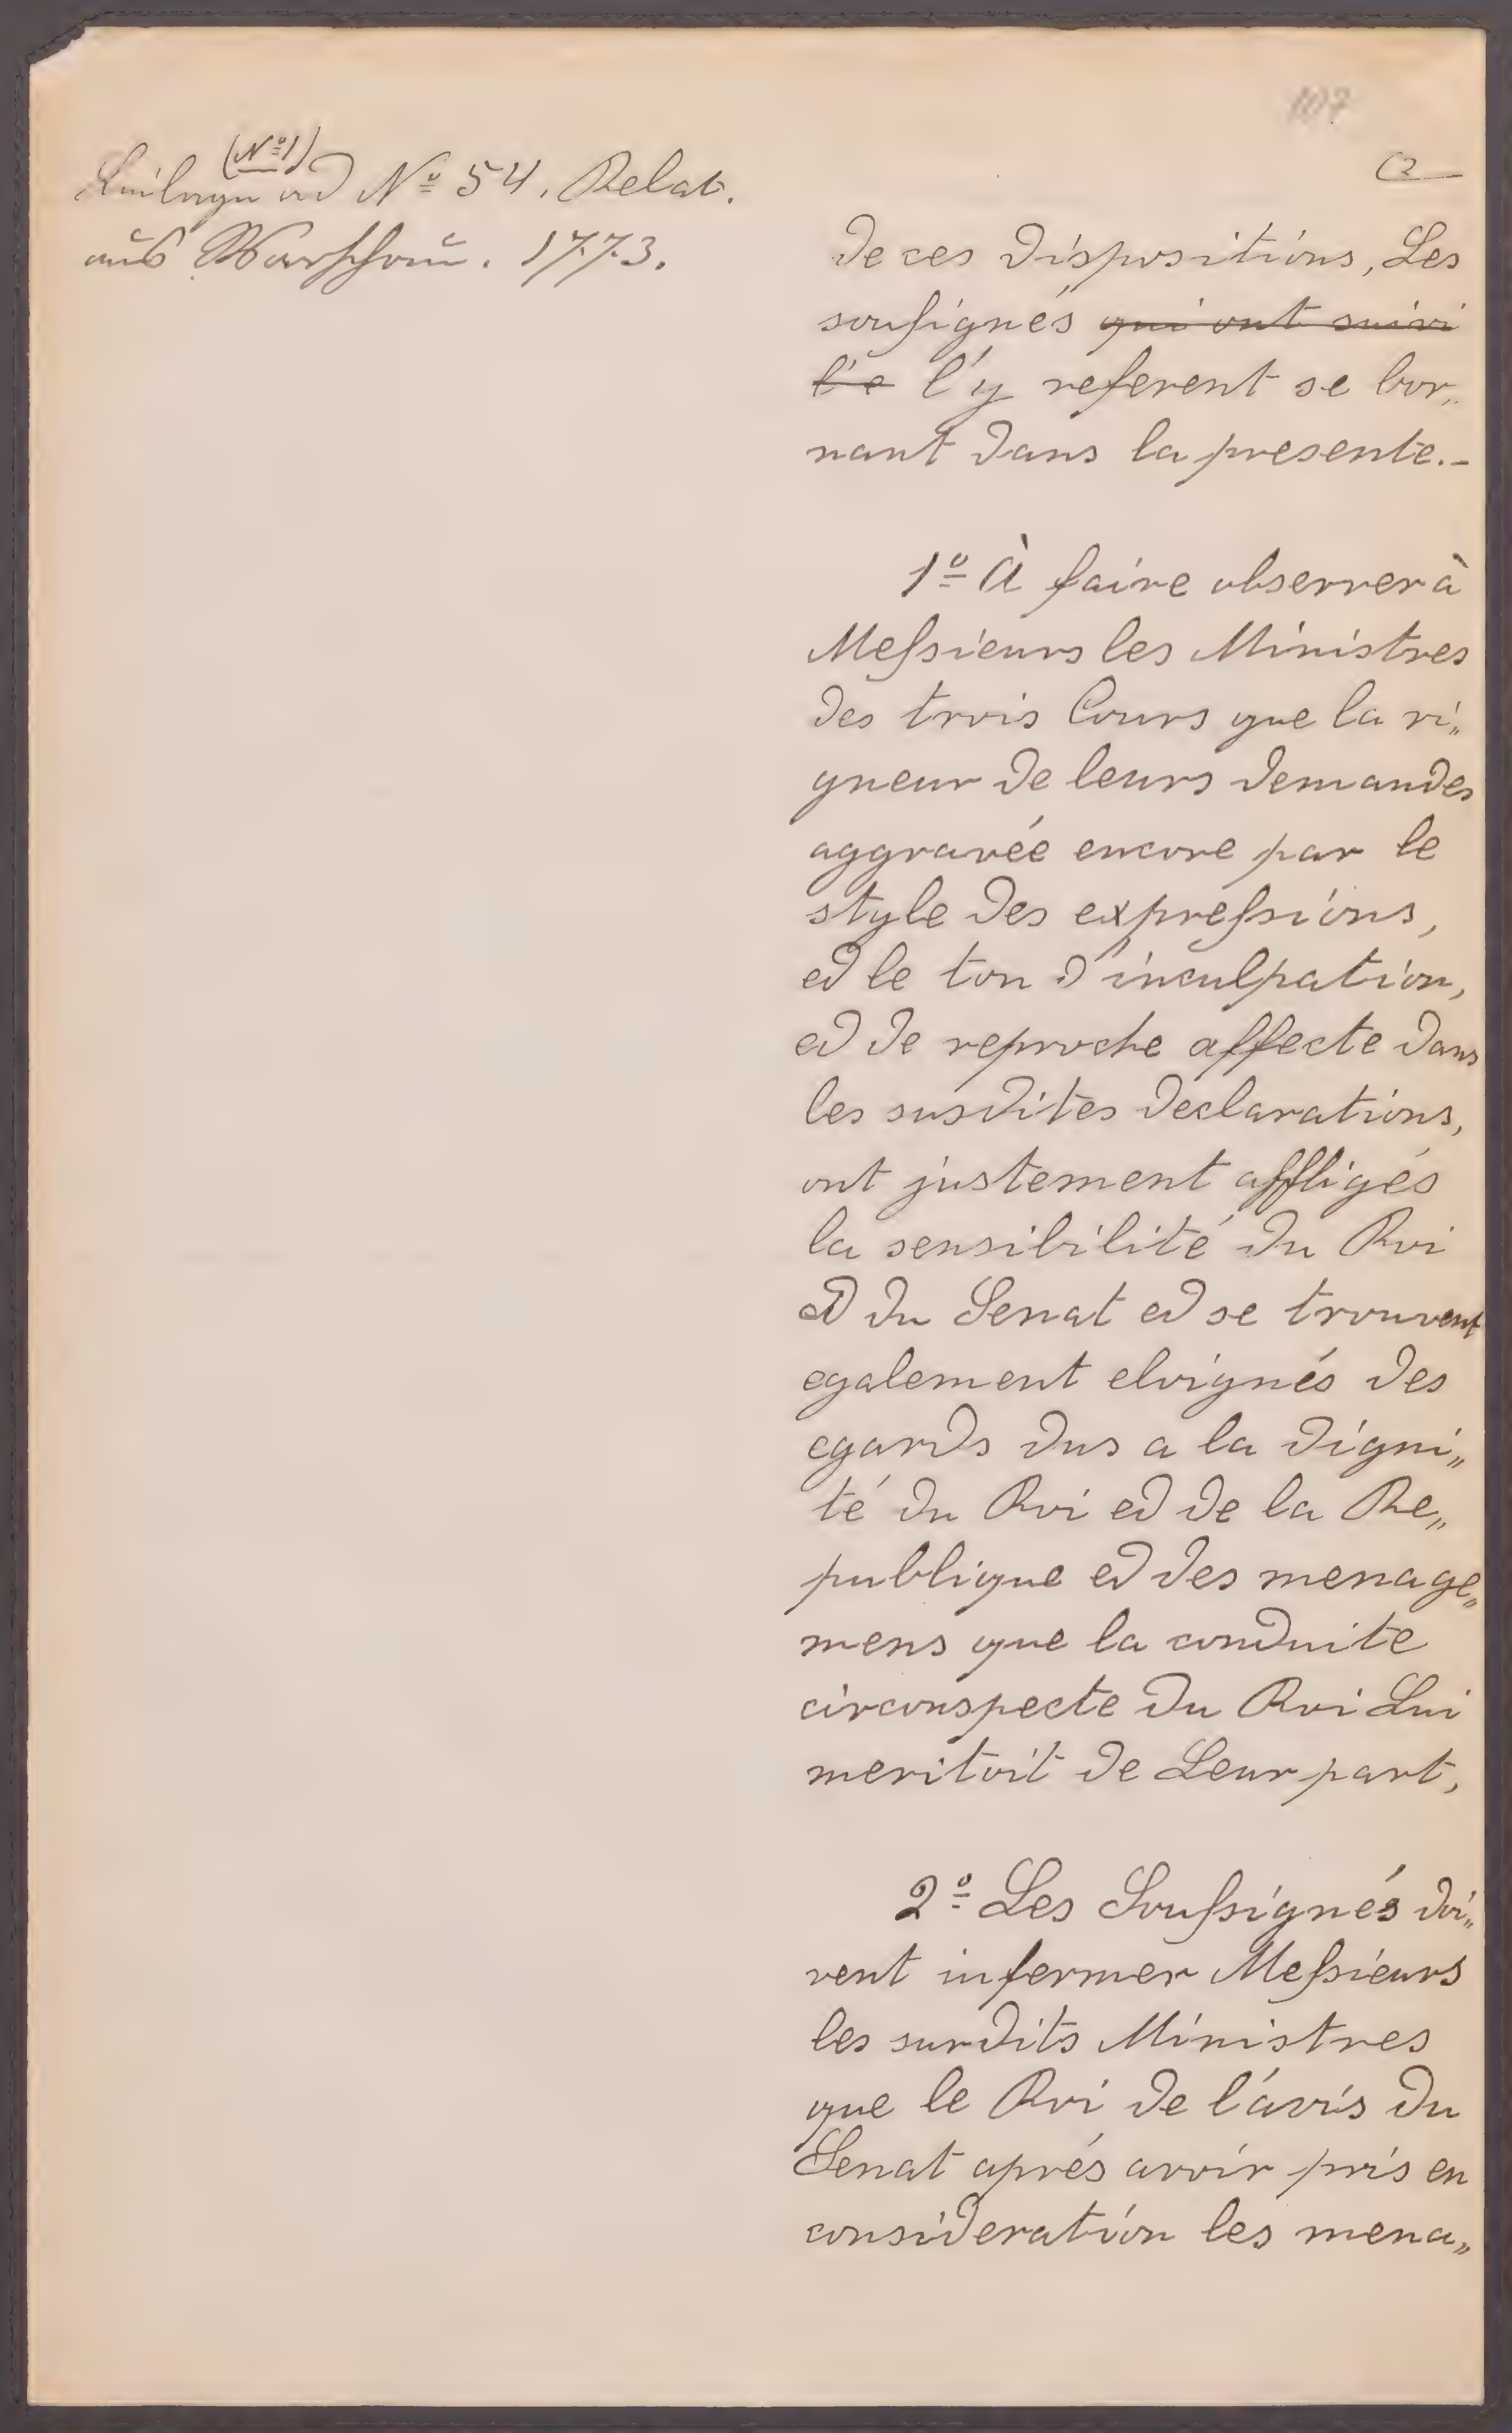 107
(2
(№ 1)
Beilage ad № 54. Relat.
aus Warschau. 1773.
de ces dispositions, Les
sousignés qui ont suivi
l'e l'y referent se bor„
nant dans la presente.-
1º À faire observer à
Messieurs les Ministres
des trois Cours que la ri„
gueur de leurs demandes
aggravée encore par le
style des expressions,
et le ton d'inculpation,
et de reproche affecte dans
les susdites declarations,
ont justement affligés
la sensibilité du Roi
et du Senat et se trouvent
egalement eloignés des
egards dus a la digni„
té du Roi et de la Re„
publique et des menage„
mens que la conduite
circonspecte du Roi Lui
meritoit de Leur part,
2º Les Soussignés doi„
vent infermer Messieurs
les surdits Ministres
que le Roi de l'avis du
Senat aprés avoir pris en
consideration les mena„